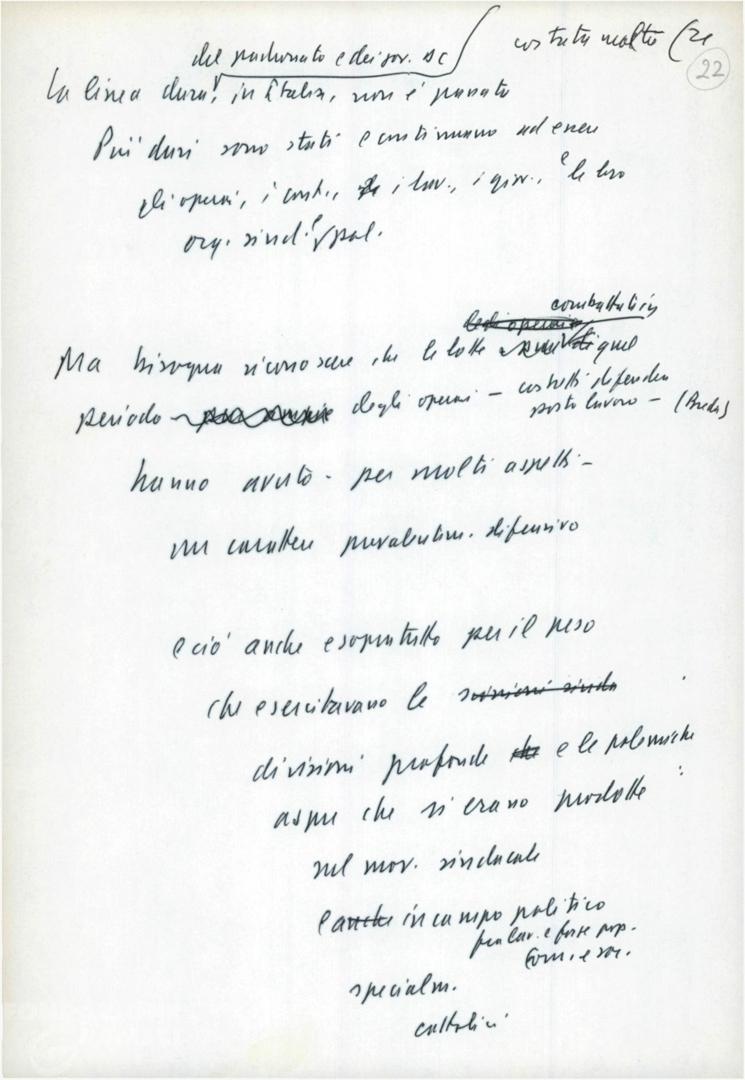 del padronato e dei gov. DC
costata molto (
22
La linea dura, in Italia, non è passata
Più duri sono stati e continuano ad essere
gli operai, i cont., i lav., i giov., e le loro
org. sind. e pol.
combattute in
Ma bisogna riconoscere che le lotte quel
periodo degli operai – costretti difendere
posto lavoro –
hanno avuto - per molti aspetti -
un carattere prevalentem. difensivo
e ciò anche e soprattutto per il peso
che esercitavano le scissioni sinda
divisioni profonde che e le polemiche
aspre che si erano prodotte
nel mov. sindacale
e anche in campo politico
fra lav. e forze pop.
Com. e soc.
specialm.
cattolici